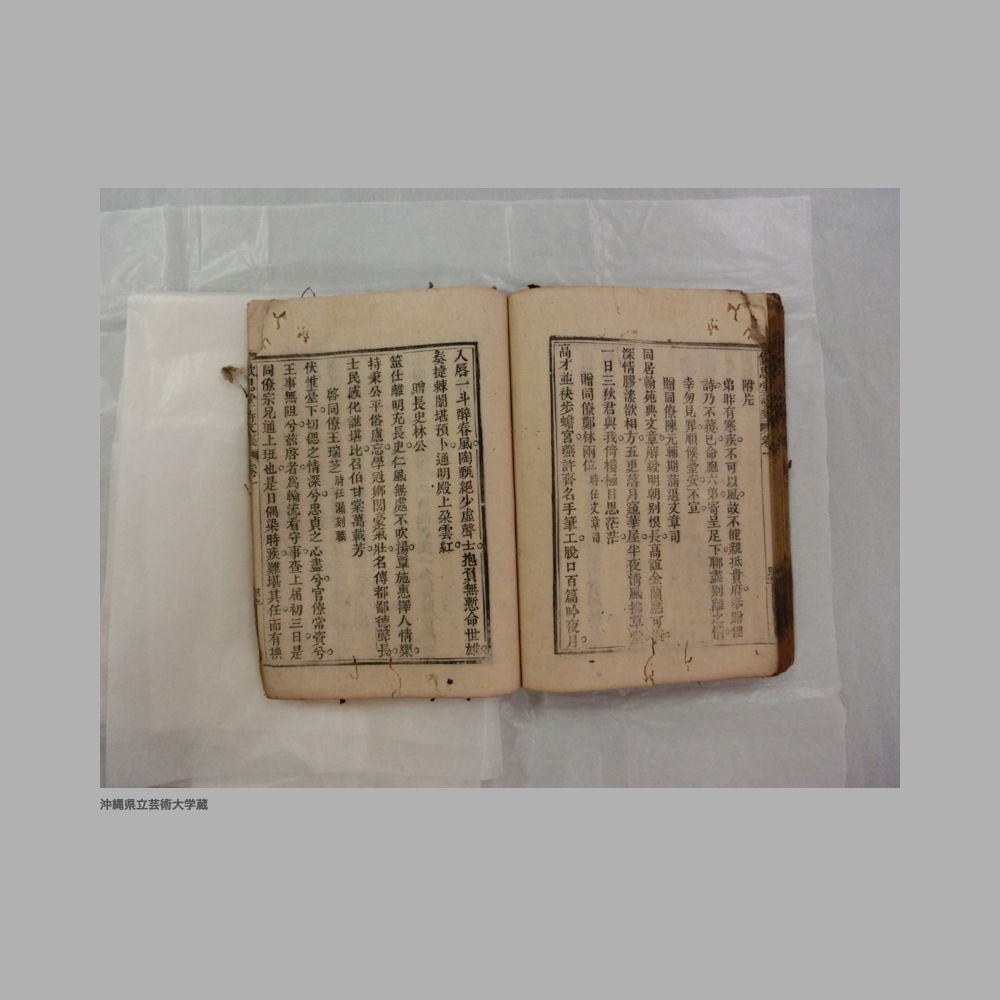 附片
弟昨有寒疾不可以風故不能親抵貴府奉贈俚
詩乃不穫已命胞六弟寄呈足下聊盡别離之情
幸勿見罪順候臺安不宣
贈同僚陳元輔期滿退文章司
同居翰苑典文章解綬明朝别恨長高誼金蘭應可
深情膠漆欲相方五更落月窺華屋半夜清風拂草堂
一日三秋君與我倚樓極目思茫茫
贈同僚鄭林兩位時任文章司
高才並袂步蟾宮燕許齊名手筆工脫口百篇吟夜月
入唇一斗醉春風陶甄絕少虛聲士抱負無慙命世雄
奏捷棘闈堪預卜通明殿上朶雲紅
贈長史林公
筮仕離明充長史仁風無處不吹揚覃施惠澤人情樂
持秉公平俗慮忘學冠鄉閭豪氣壯名傳都鄙德聲長
士民感化誰堪比召伯甘棠萬載芳
啓同僚王瑞芝時任漏刻職
伏惟臺下切偲之情深兮忠貞之心盡兮官僚常資兮
王事無阻兮兹啓者爲輪流看守事查上届初三日是
同僚宗兄通上班也是日偶染時疾難堪其任而有換